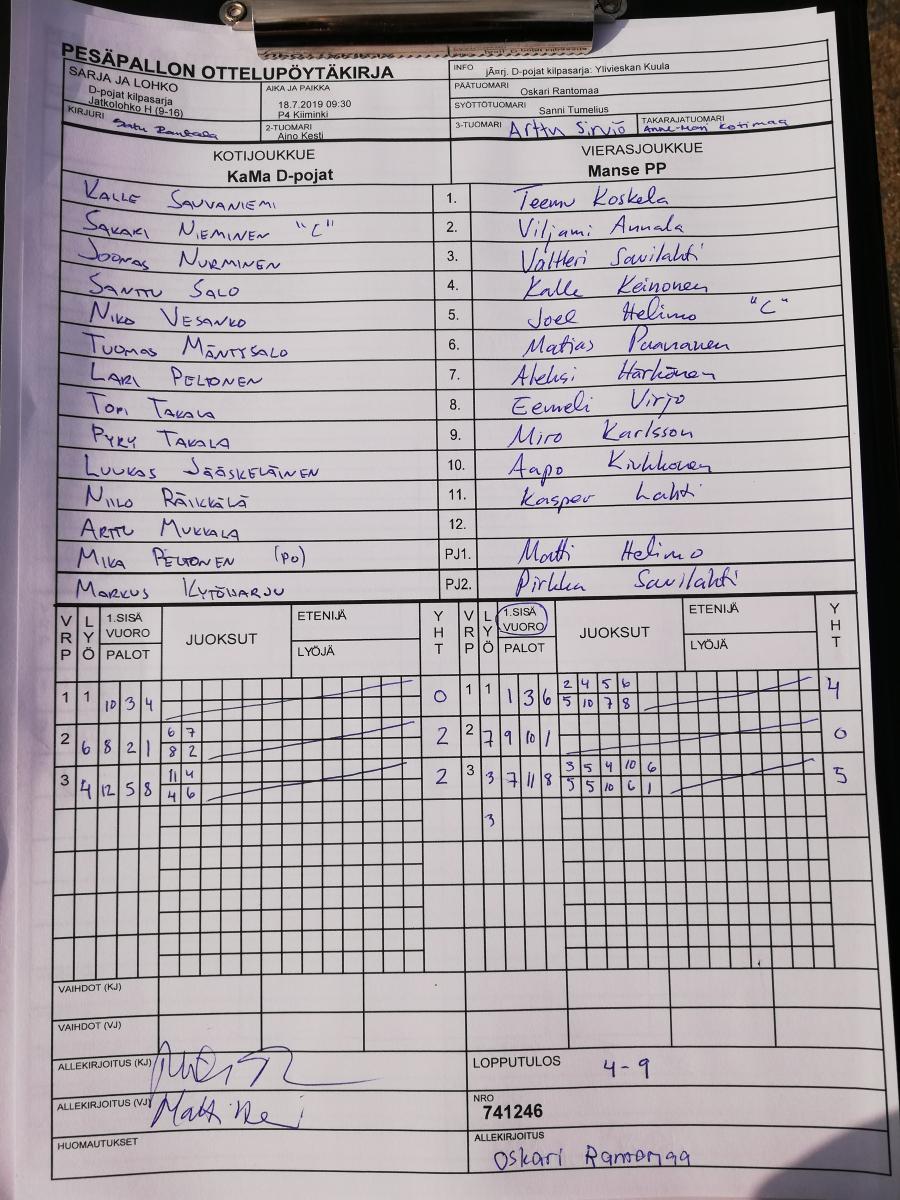 PESÄPALLON OTTELUPÖYTÄKIRJA
SARJA JA LOHKO
D-pojat kilpasarja
Jatkolohko H (9-16)
AIKA JA PAIKKA
18.7.2019 09:30
P4 Kiiminki
INFO jÃ¤rj. D-pojat kilpasarja: Ylivieskan Kuula
PÄÄTUOMARI Oskari Rantomaa
SYÖTTÖTUOMARI Sanni Tumelius
KIRJURI Rantala
2-TUOMARI Aino Kesti
3-TUOMARI Arttu Sirviö
TAKARAJATUOMARI Anne-Mari Kotimaa
KOTIJOUKKUE
KaMa D-pojat
VIERASJOUKKUE
Manse PP
KALLE SAUVANIEMI 1. Teemu Koskela
SAKARI NIEMINEN "C" 2. Viljami Annala
JOONAS NURMINEN 3. Valtteri Savilahti
SANTTU SALO 4. Kalle Keinonen
NIKO VESANKO 5. Joel Helimo "C"
TUOMAS MÄNTYSALO 6. Matias Paananen
LARI PELTONEN 7. Aleksi Härkönen
TOPI TAKALA 8. Eemeli Virjo
PYRY TAKALA 9. Miro Karlsson
LUUKAS JÄÄSKELÄINEN 10. Aapo Kivikkonen
NIILO RÄIKKÄLÄ 11. Kasper Lahti
ARTTU MUKKALA 12.
MIKA PELTONEN (PO) PJ1. Matti Helimo
MARKUS KYTÖHARJU PJ2. Pirkka Savilahti
VRP LYÖ 1.SISÄ VUORO PALOT JUOKSUT ETENIJÄ LYÖJÄ YHT VRP LYÖ 1.SISÄ VUORO PALOT JUOKSUT ETENIJÄ LYÖJÄ YHT
1 1 10 3 4 0 1 1 1 3 6 2 4 5 6 4
5 10 7 8
2 6 8 2 1 6 7 2 2 7 9 10 1 0
8 2
3 4 12 5 8 11 4 2 3 3 7 11 8 3 5 4 10 6 5
4 6 5 5 10 6 1
3
VAIHDOT (KJ)
VAIHDOT (VJ)
ALLEKIRJOITUS (KJ)
LOPPUTULOS 4-9
ALLEKIRJOITUS (VJ) Matti
NRO
741246
HUOMAUTUKSET
ALLEKIRJOITUS
Oskari Rantomaa